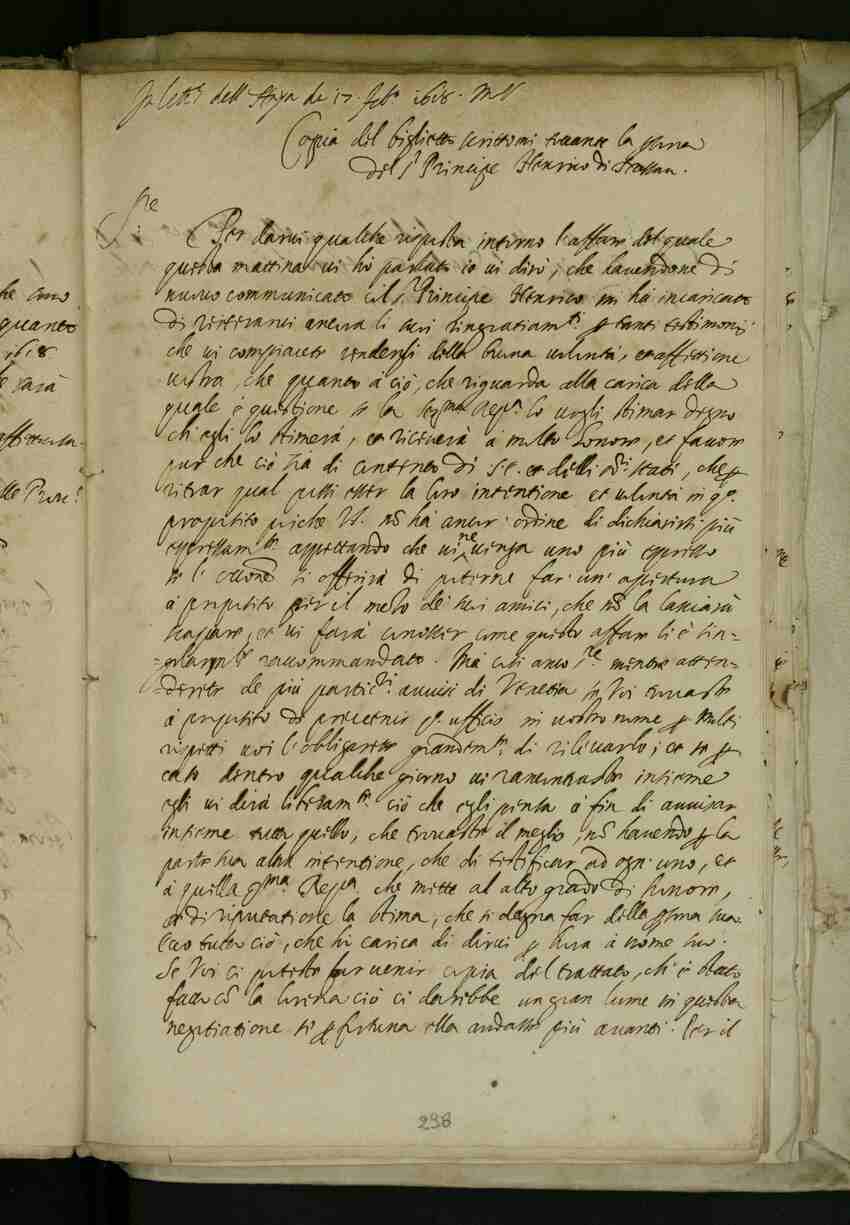 In lettere dell'Haya de 17. Feb.º 1618. M V
Copia del biglietto scrittomi toccante la persona
del S.r Principe Henrico di Nassau.
S.re
Per darvi qualche risposta intorno l'affare del quale
questa mattina vi hò parlato io vi dirò, che havendone di
nuovo communicato col S.r Principe Henrico mi hà incaricato
di reiterarvi ancora li suoi ringratiam.ti p tanti testimonij
che vi compiacete rendergli della buona volontà, et affettione
vostra, che quanto à ciò, che riguarda alla carica della
quale è questione se la Ser.ma Rep.ca lo vogli stimar degno
ch'egli lo stimerà, et riceverà à molto honore, et favore
pur che ciò sia di contento di S.E. et delli SS.ri Stati, che p
ritrar qual possi esser la loro intentione et volontà in q.º
proposito poiche V.S. nõ hà ancor' ordine di dichiarirsi più
espressam.te aspettando che vi ne venga uno più espresso
se l'occ.one si offerirà di poterne far' un' apertura
à proposito per il mezo de suoi amici, che nõ la lasciarà
scapare, et vi farà conoscer come questo affare li è sin-
=golarm.te raccommandato. Mà così anco S.re mentre atten-
=derete de più partic.ri avvisi di Venetia se voi trovaste
à proposito di prevenir q.º ufficio in vostro nome p molti
rispetti voi l'obligareste grandem.te di rilevarlo; et se p
caso dentro qualche giorno vi rancontraste insieme
egli vi dirà liberam.te ciò che egli pensa à fin di avvisar
insieme tutto quello, che trovaste il meglio, nõ havendo p la
parte sua altra intentione, che di testificar ad ogni uno, et
à quella Ser.ma Rep.ca che mette al alto grado di honore,
et di riputatione la stima, che si degna far della persona sua
ecco tutto ciò, che hò carica di dirvi p hora à nome suo.
Se voi ci poteste far venir copia del trattato, ch'è stato
fatto cõ la Lorena ciò ci darebbe un gran lume in questa
negotiatione se p fortuna ella andasse più avanti. Per il
298